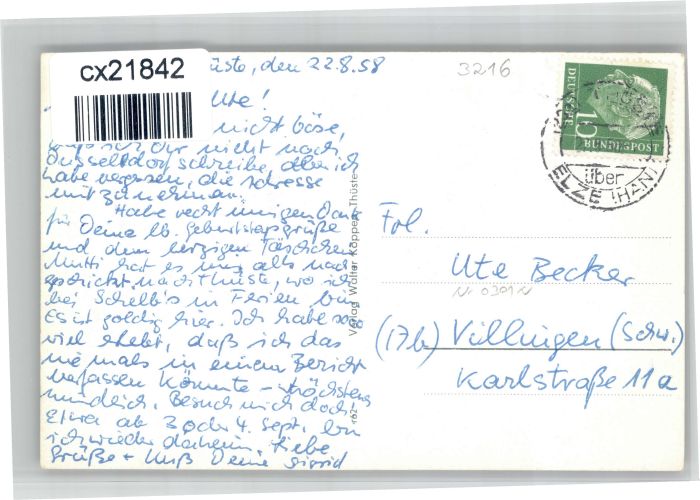 cx21842
üste, den 22.8.58
3216
Ute!
nicht böse,
daß ich Dir nicht nach
Düsseldorf schreibe, aber ich
habe vergessen, die Adresse
mitzunehmen.
Habe recht innigen Dank
für Deine lb. Geburtstagsgrüße
und dem herzigen Täschchen.
Mutti hat es mir alles nach
geschickt nach Thüste, wo ich
bei Schelb's in Ferien bin.
Es ist goldig hier. Ich habe so
viel erlebt, daß ich das
niemals in einem Bericht
verfassen könnte - höchstens
mündlich. Besuch mich doch!
Etwa ab 3. oder 4. Sept. bin
ich wieder daheim. Liebe
Grüße + Kuß Deine Sigrid
Verlag Walter Köppen, Thüste
162
DEUTSCHE
BUNDESPOST
10
über
ELZE (HAN)
Frl.
Ute Becker
(17b) Villingen (Schw.)
Karlstraße 11a